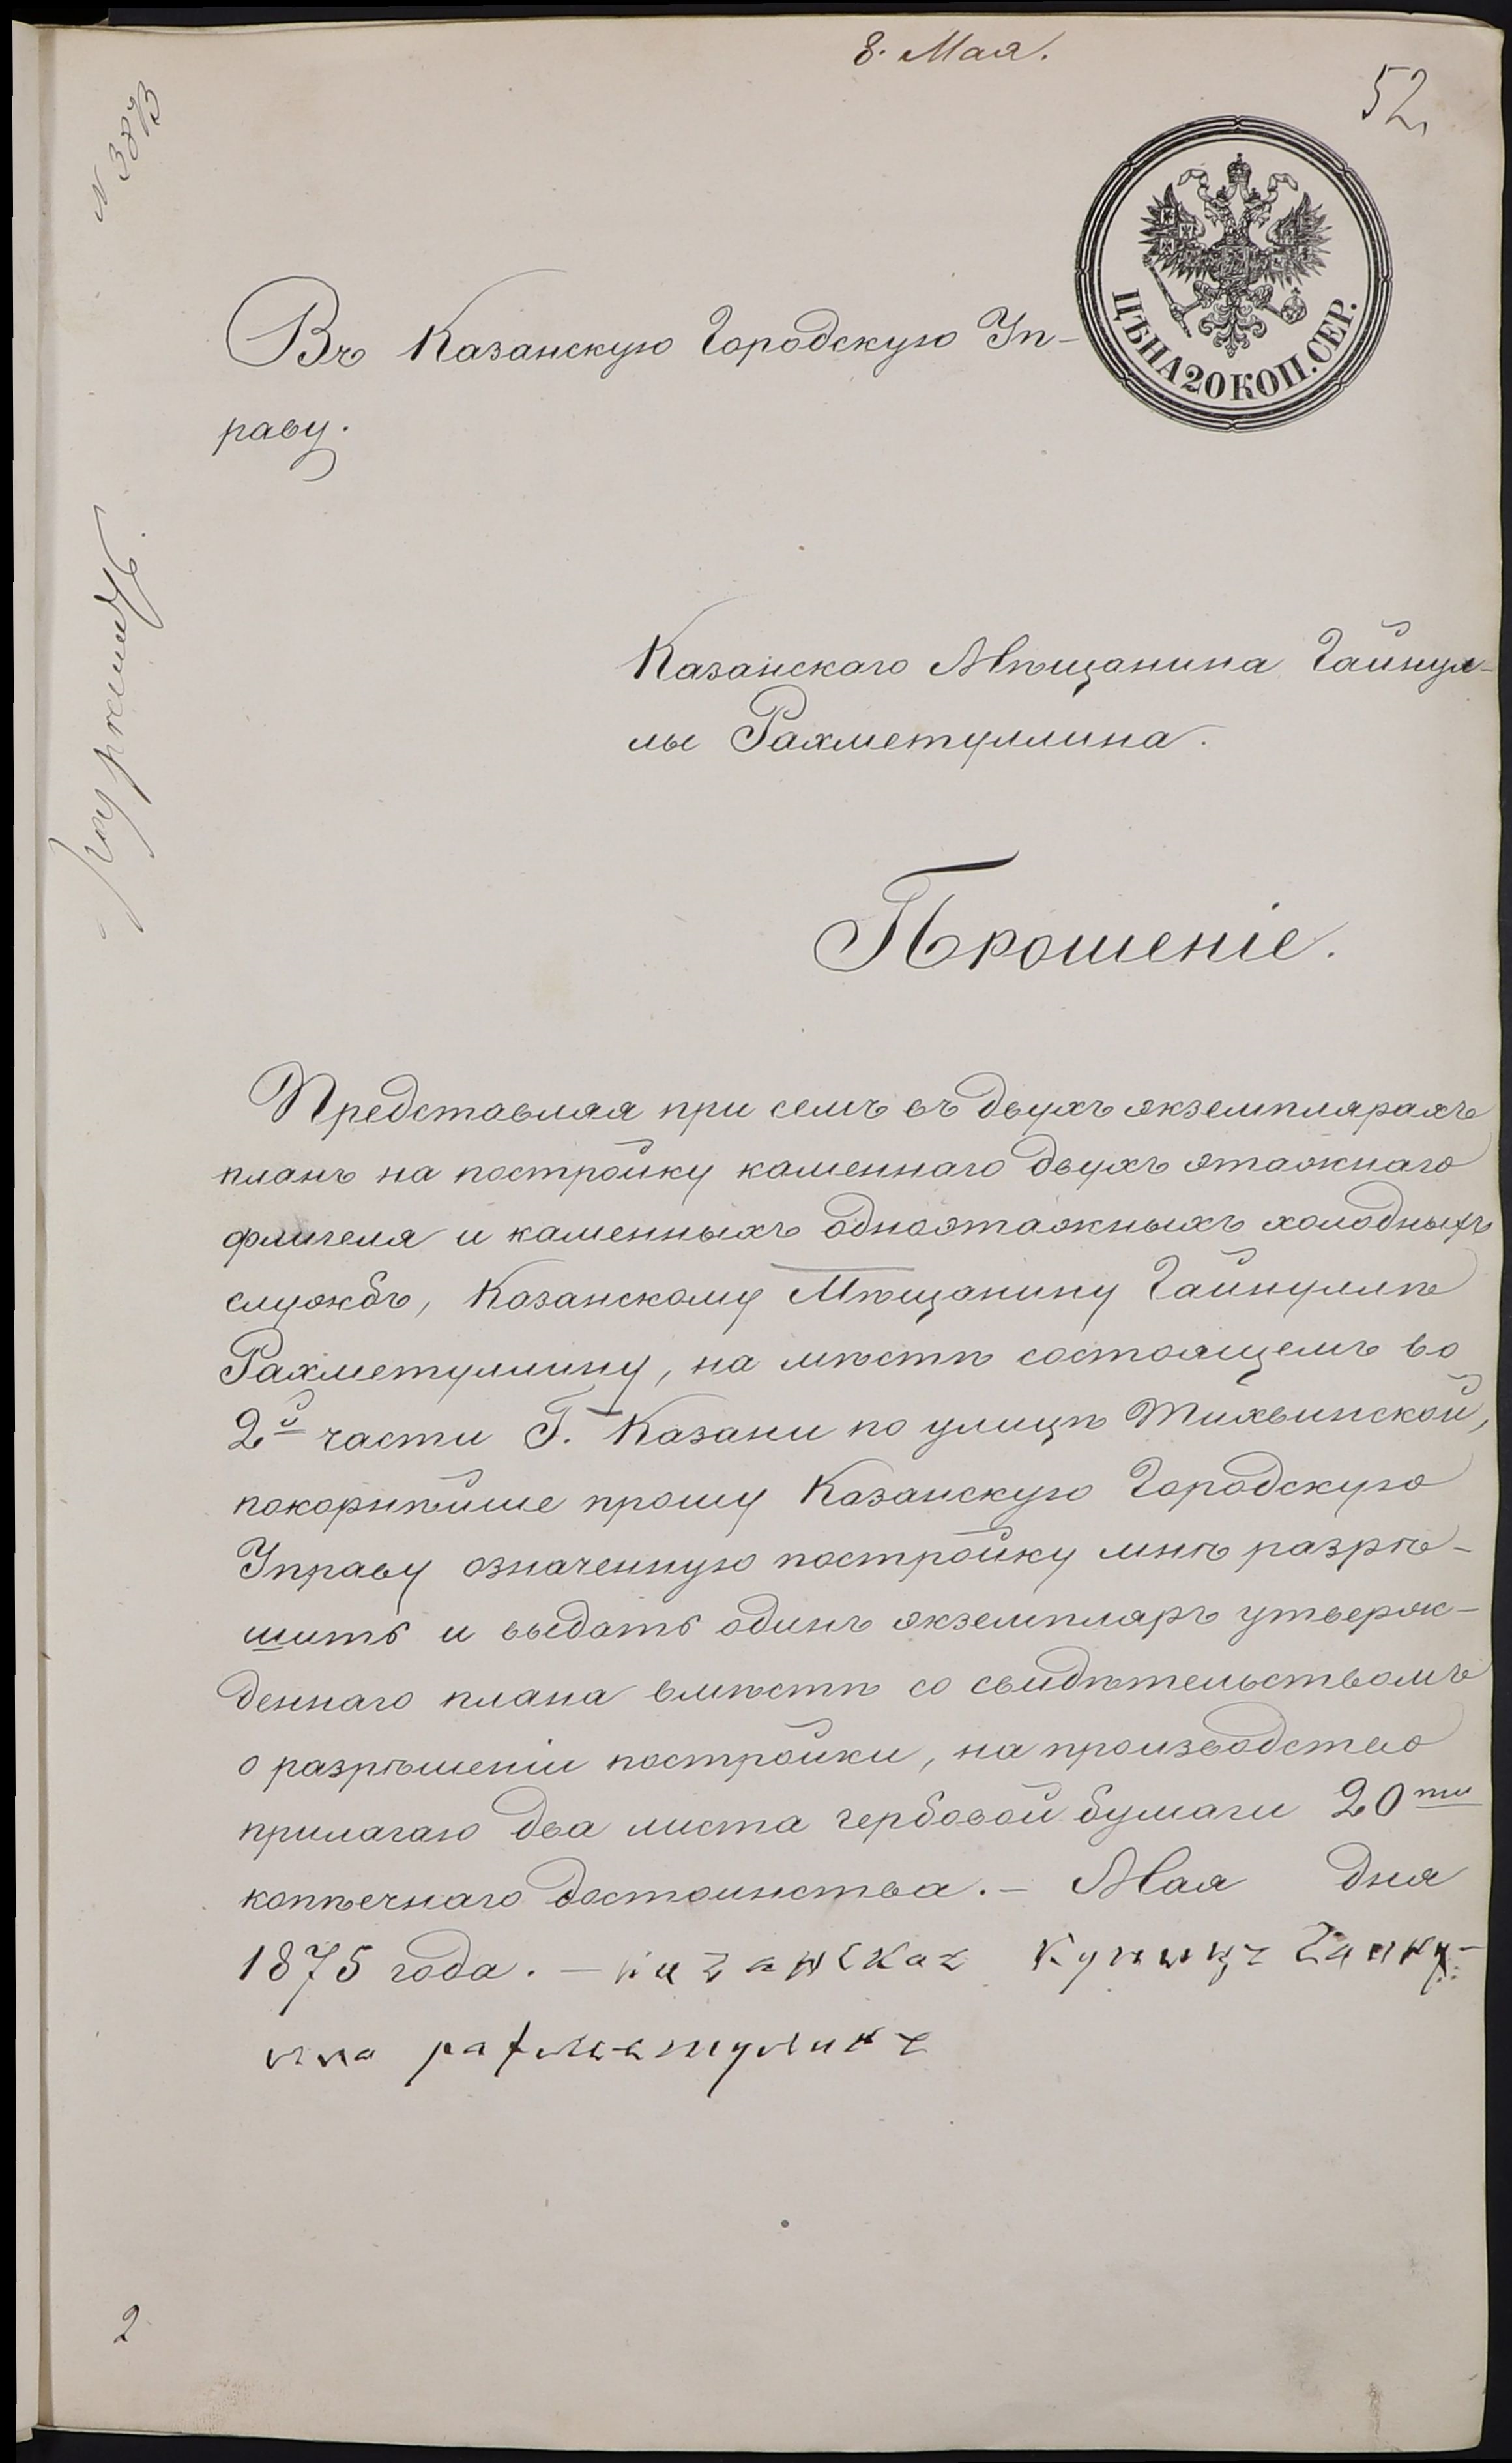 8. Мая.
52
N 3873
ЦѢНА 20 КОП. СЕР.
Въ Казанскую Городскую Уп-
раву.
Казанскаго Мѣщанина Гайнул-
лы Рахметуллина.
разрешить.
Прошеніе.
Представляя при семъ въ двухъ экземплярахъ
планъ на постройку каменнаго двухъ этажнаго
флигеля и каменныхъ одноэтажныхъ холодныхъ
службъ, Казанскому Мѣщанину Гайнуллѣ
Рахметуллину, на мѣстѣ состоящемъ во
2й части Г. Казани по улицѣ Тихвинской,
покорнѣйше прошу Казанскую Городскую
Управу означенную постройку мнѣ разрѣ-
шить и выдать одинъ экземпляръ утверж-
деннаго плана вмѣстѣ со свидѣтельствомъ
о разрѣшеніи постройки, на производство
прилагаю два листа гербовой бумаги 20ти
копѣечнаго достоинства.- Мая дня
1875 года. - купицъ Гайну-
лла рахматулинъ
2